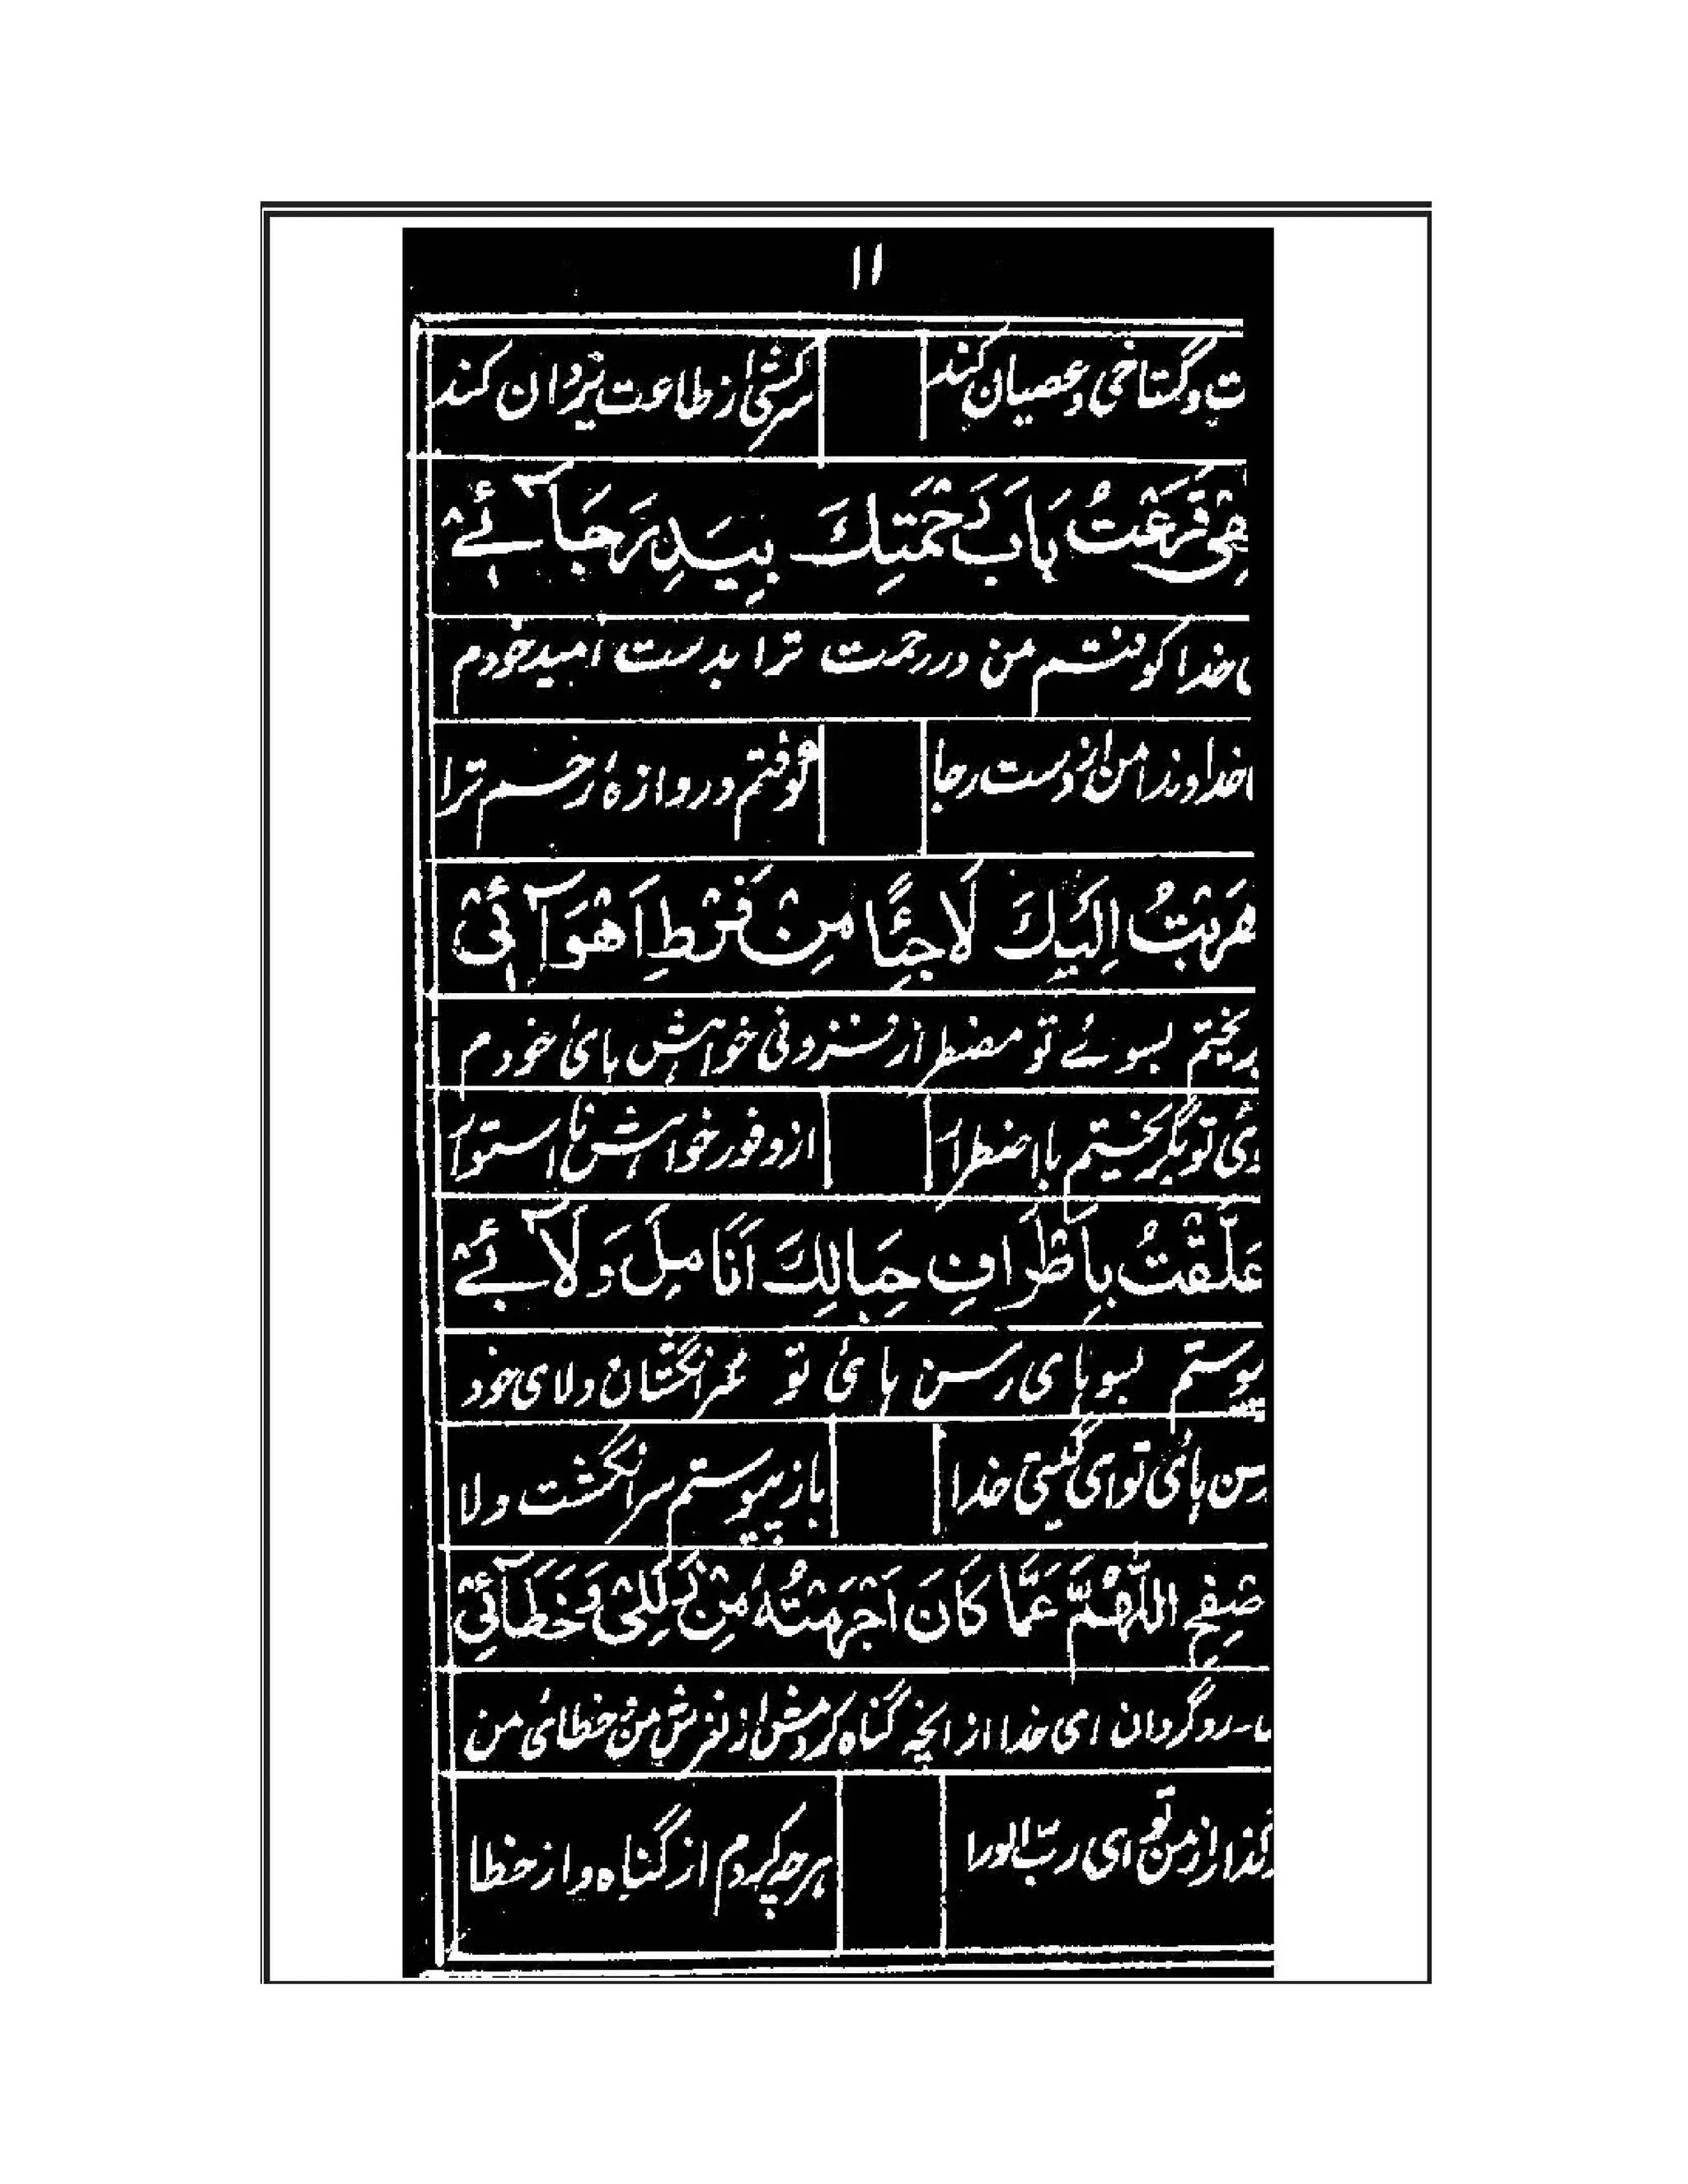 ۱۱
و گستاخی و عصیان کند سرکشی از طاعت یزدان کند
قَرَعْتُ بَابَ رَحْمَتِكَ بِيَدِ رَجَآئِے
خدا کوفتم من در رحمت ترا بدست امید خودم
خداوندا من از دست رجا کوفتم دروازهٔ رحم ترا
هَرَبْتُ اِلَيْكَ لَاجِئًا مِنْ فَرْطِ اَهْوَآئِیْ
بگریختم بسوئے تو مضطر از فزونی خواهش ہائ خودم
تو بگریختم با اضطرار از وفور خواهش نا استوار
عَلَّقْتُ بِاَطْرَافِ حِبَالِكَ اَنَامِلَ وَلَآئِے
پیوستم بسوہای رسن ہائ تو سر انگشتان ولای خود
رسن ہائی تو ای گیتی خدا باز پیوستم سر انگشت ولا
اللّٰهُمَّ عَمَّا كَانَ اَجْرَمْتُهٗ مِنْ زَلَلِیْ وَخَطَآئِیْ
رو گردان ای خدا از انچه گناه کردمش از لغزش من خطائی من
از من تو ای رب الورا هرچه کردم از گناه و از خطا